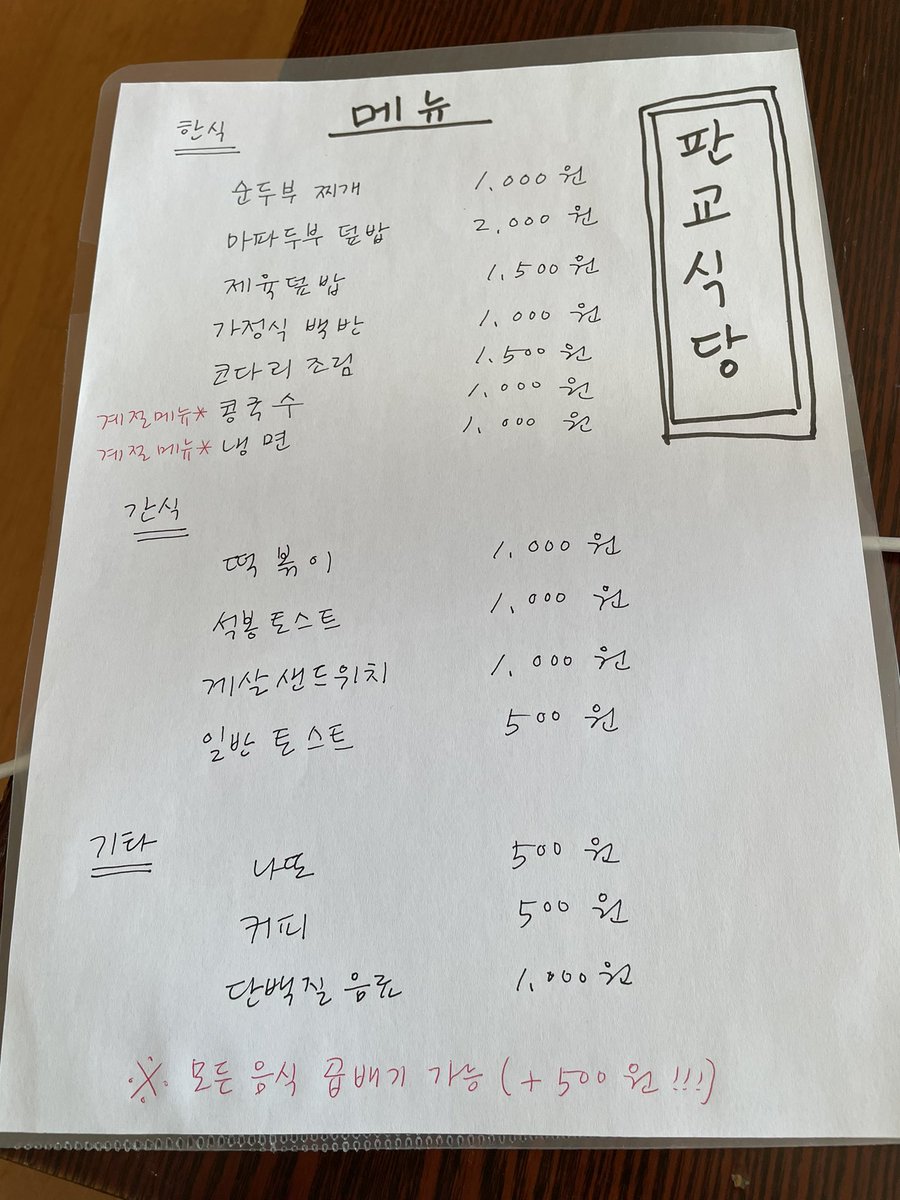 메뉴
판교식당
한식
순두부 찌개 1,000 원
마파두부 덮밥 2,000 원
제육덮밥 1,500 원
가정식 백반 1,000 원
코다리 조림 1,500 원
계절메뉴* 콩국수 1,000 원
계절메뉴* 냉면 1,000 원
간식
떡볶이 1,000 원
석봉토스트 1,000 원
게살샌드위치 1,000 원
일반 토스트 500 원
기타
나또 500 원
커피 500 원
단백질 음료 1,000 원
※ 모든 음식 곱배기 가능 (+500 원!!!)